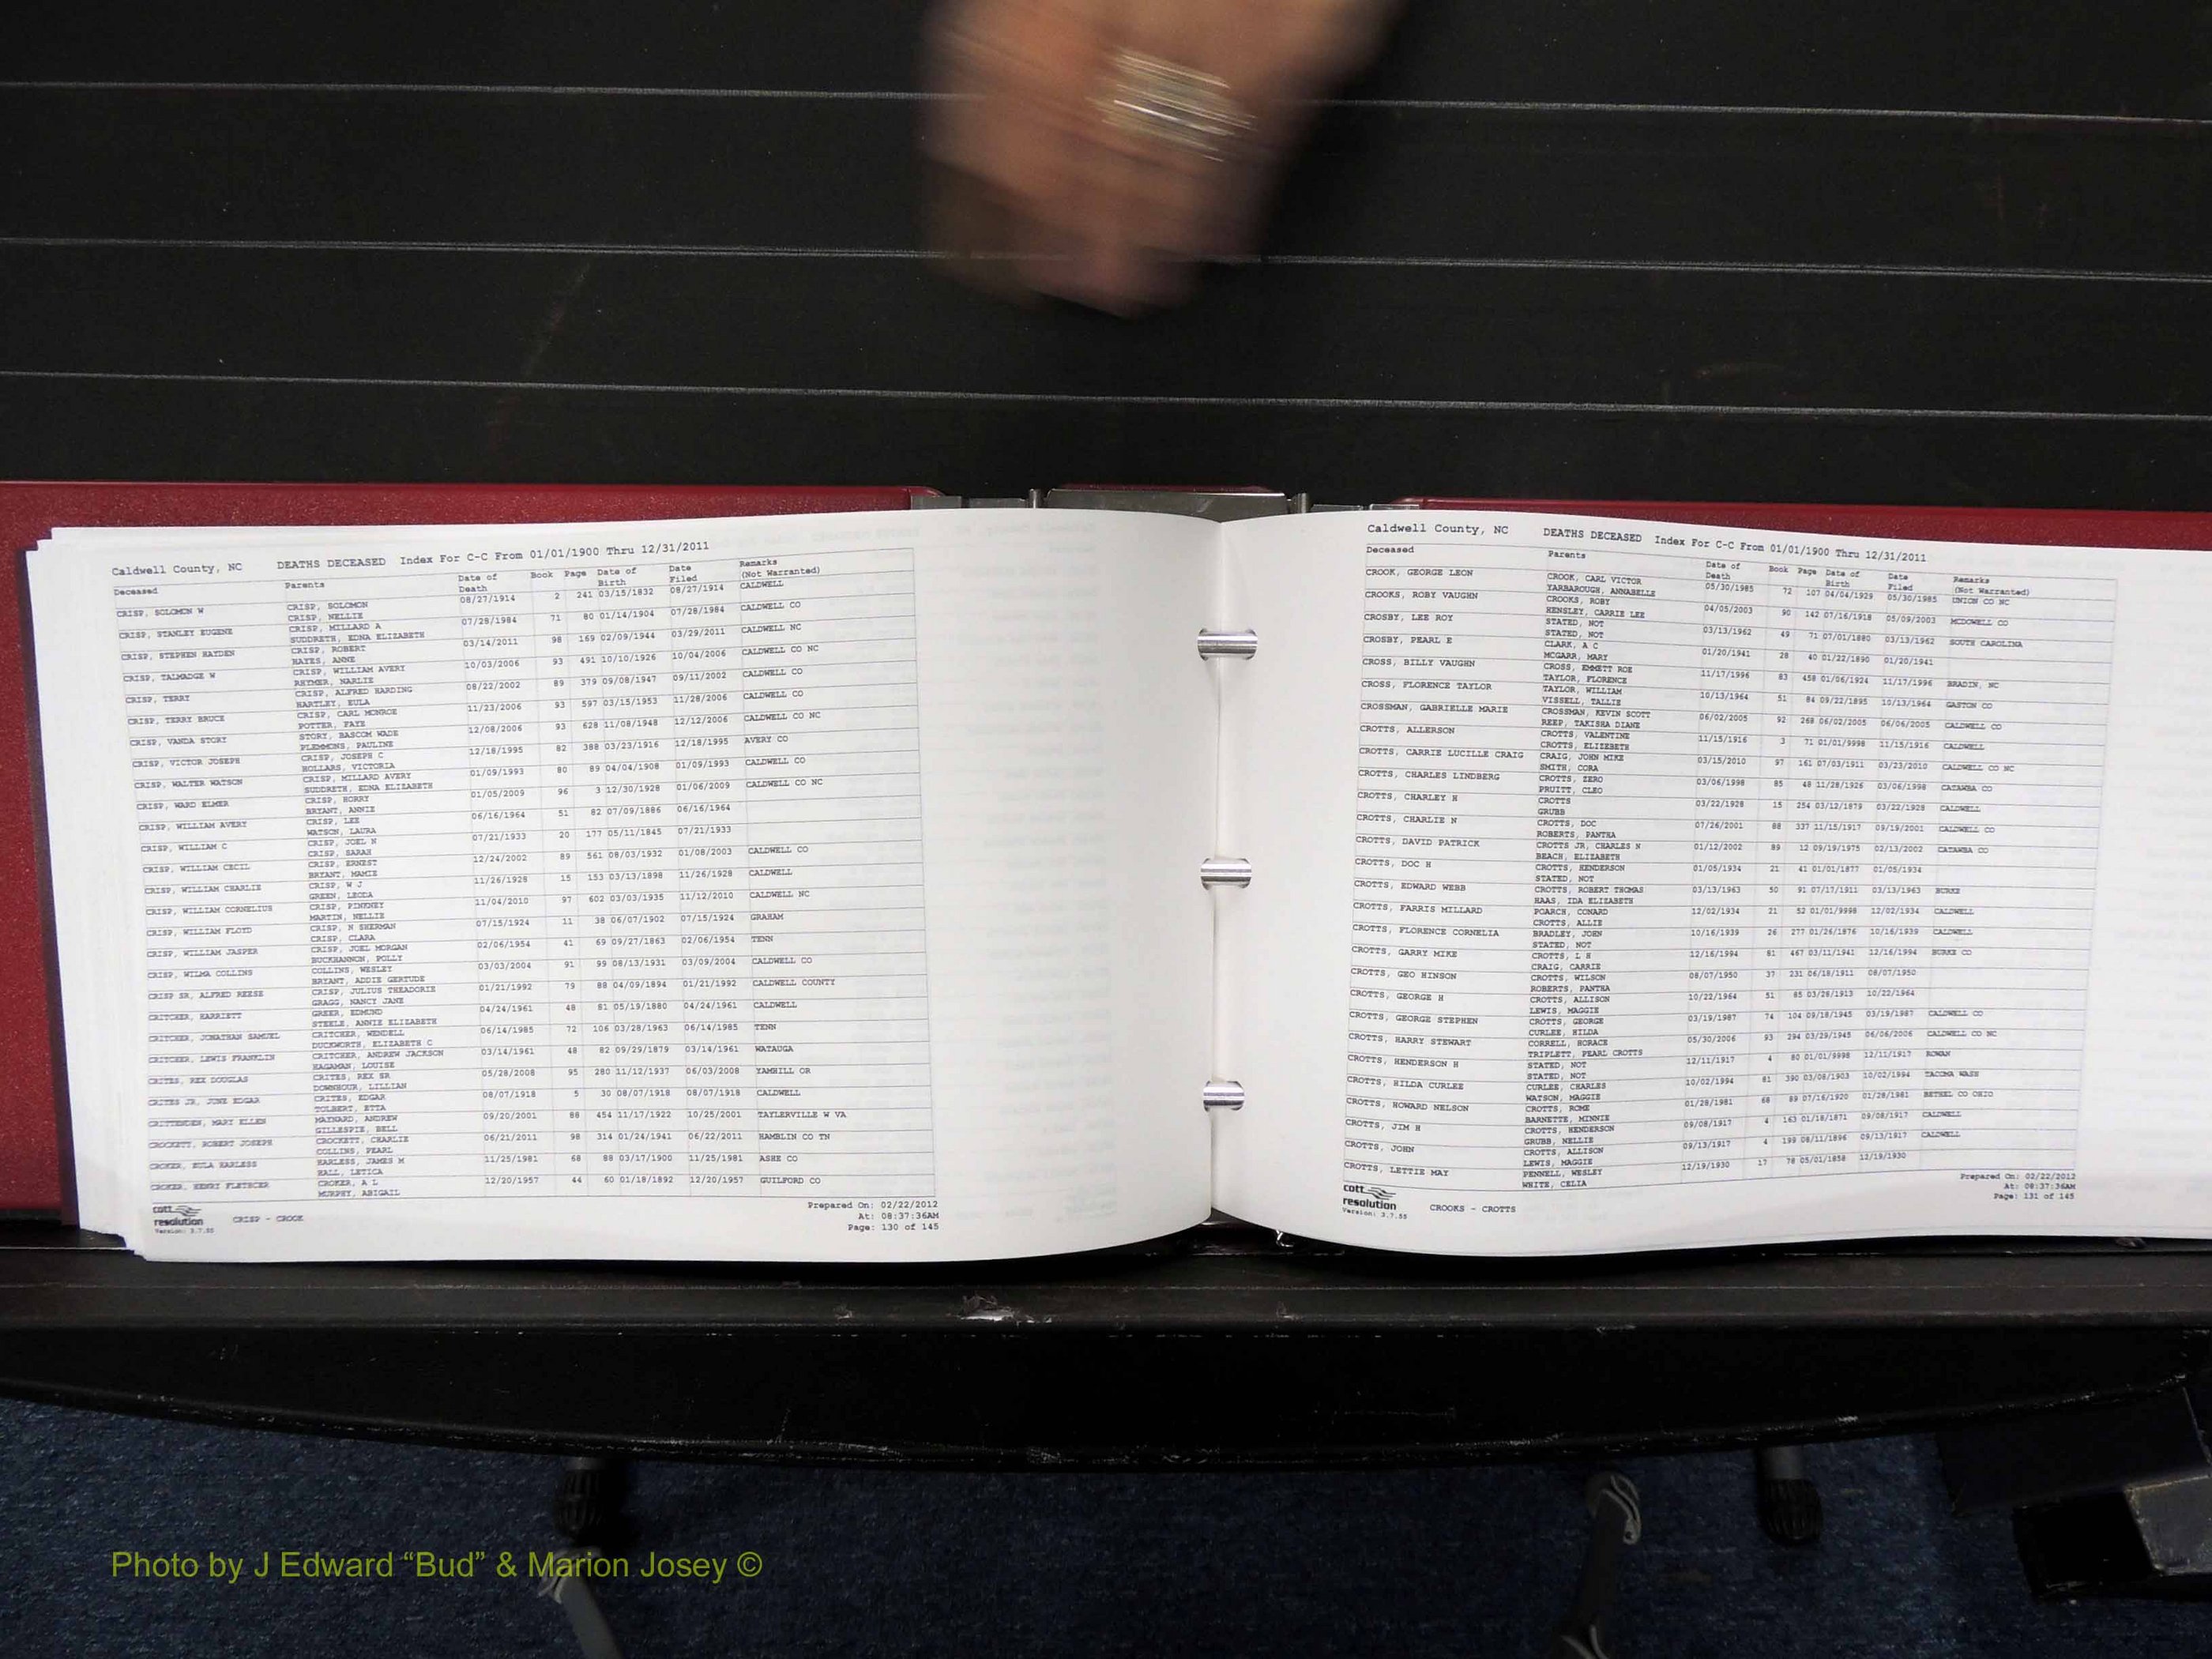 Caldwell County, NC DEATHS DECEASED Index For C-C From 01/01/1900 Thru 12/31/2011
Deceased Parents Date of Death Book Page Date of Birth Date Filed Remarks (Not Warranted)
CRISP, SOLOMON W CRISP, SOLOMON 08/27/1914 2 241 03/15/1832 08/27/1914 CALDWELL
CRISP, NELLIE
CRISP, STANLEY EUGENE CRISP, MILLARD A 07/28/1984 71 80 01/14/1904 07/28/1984 CALDWELL CO
SUDDRETH, EDNA ELIZABETH
CRISP, STEPHEN HAYDEN CRISP, ROBERT 03/14/2011 98 169 02/09/1944 03/29/2011 CALDWELL NC
HAYES, ANNE
CRISP, TALMADGE W CRISP, WILLIAM AVERY 10/03/2006 93 491 10/10/1926 10/04/2006 CALDWELL CO NC
RHYMER, NARLIE
CRISP, TERRY CRISP, ALFRED HARDING 08/22/2002 89 379 09/08/1947 09/11/2002 CALDWELL CO
HARTLEY, EULA
CRISP, TERRY BRUCE CRISP, CARL MONROE 11/23/2006 93 597 03/15/1953 11/28/2006 CALDWELL CO
POTTER, FAYE
CRISP, VANDA STORY STORY, BASCOM WADE 12/08/2006 93 628 11/08/1948 12/12/2006 CALDWELL CO NC
PLEMMONS, PAULINE
CRISP, VICTOR JOSEPH CRISP, JOSEPH C 12/18/1995 82 388 03/23/1916 12/18/1995 AVERY CO
HOLLARS, VICTORIA
CRISP, WALTER WATSON CRISP, MILLARD AVERY 01/09/1993 80 89 04/04/1908 01/09/1993 CALDWELL CO
SUDDRETH, EDNA ELIZABETH
CRISP, WARD ELMER CRISP, HORRY 01/05/2009 96 3 12/30/1928 01/06/2009 CALDWELL CO NC
BRYANT, ANNIE
CRISP, WILLIAM AVERY CRISP, LEE 06/16/1964 51 82 07/09/1886 06/16/1964
WATSON, LAURA
CRISP, WILLIAM C CRISP, JOEL N 07/21/1933 20 177 05/11/1845 07/21/1933
CRISP, SARAH
CRISP, WILLIAM CECIL CRISP, ERNEST 12/24/2002 89 561 08/03/1932 01/08/2003 CALDWELL CO
BRYANT, MAMIE
CRISP, WILLIAM CHARLIE CRISP, W J 11/26/1928 15 153 03/13/1898 11/26/1928 CALDWELL
GREEN, LEODA
CRISP, WILLIAM CORNELIUS CRISP, PINKNEY 11/04/2010 97 602 03/03/1935 11/12/2010 CALDWELL NC
MARTIN, NELLIE
CRISP, WILLIAM FLOYD CRISP, N SHERMAN 07/15/1924 11 38 06/07/1902 07/15/1924 GRAHAM
CRISP, CLARA
CRISP, WILLIAM JASPER CRISP, JOEL MORGAN 02/06/1954 41 69 09/27/1863 02/06/1954 TENN
BUCKHANNON, POLLY
CRISP, WILMA COLLINS COLLINS, WESLEY 03/03/2004 91 99 08/13/1931 03/09/2004 CALDWELL CO
BRYANT, ADDIE GERTUDE
CRISP SR, ALFRED REESE CRISP, JULIUS THEADORIE 01/21/1992 79 88 04/09/1894 01/21/1992 CALDWELL COUNTY
GRAGG, NANCY JANE
CRITCHER, HARRIETT GREER, EDMUND 04/24/1961 48 81 05/19/1880 04/24/1961 CALDWELL
STEELE, ANNIE ELIZABETH
CRITCHER, JONATHAN SAMUEL CRITCHER, WENDELL 06/14/1985 72 106 03/28/1963 06/14/1985 TENN
DUCKWORTH, ELIZABETH C
CRITCHER, LEWIS FRANKLIN CRITCHER, ANDREW JACKSON 03/14/1961 48 82 09/29/1879 03/14/1961 WATAUGA
HAGAMAN, LOUISE
CRITES, REX DOUGLAS CRITES, REX SR 05/28/2008 95 280 11/12/1937 06/03/2008 YAMHILL OR
DOWNHOUR, LILLIAN
CRITES JR, JUNE EDGAR CRITES, EDGAR 08/07/1918 5 30 08/07/1918 08/07/1918 CALDWELL
TOLBERT, ETTA
CRITTENDEN, MARY ELLEN MAYNARD, ANDREW 09/20/2001 88 454 11/17/1922 10/25/2001 TAYLERVILLE W VA
GILLESPIE, BELL
CROCKETT, ROBERT JOSEPH CROCKETT, CHARLIE 06/21/2011 98 314 01/24/1941 06/22/2011 HAMBLIN CO TN
COLLINS, PEARL
CROKER, EULA HARLESS HARLESS, JAMES M 11/25/1981 68 88 03/17/1900 11/25/1981 ASHE CO
HALL, LETICA
CROKER, HENRY FLETECER CROKER, A L 12/20/1957 44 60 01/18/1892 12/20/1957 GUILFORD CO
MURPHY, ABIGAIL
cott resolution Version: 3.7.55
CRISP - CROOK
Prepared On: 02/22/2012
At: 08:37:36AM
Page: 130 of 145
Caldwell County, NC DEATHS DECEASED Index For C-C From 01/01/1900 Thru 12/31/2011
Deceased Parents Date of Death Book Page Date of Birth Date Filed Remarks (Not Warranted)
CROOK, GEORGE LEON CROOK, CARL VICTOR 05/30/1985 72 107 04/04/1929 05/30/1985 UNION CO NC
YARBAROUGH, ANNABELLE
CROOKS, ROBY VAUGHN CROOKS, ROBY 04/05/2003 90 142 07/16/1918 05/09/2003 MCDOWELL CO
HENSLEY, CARRIE LEE
CROSBY, LEE ROY STATED, NOT 03/13/1962 49 71 07/01/1880 03/13/1962 SOUTH CAROLINA
STATED, NOT
CROSBY, PEARL E CLARK, A C 01/20/1941 28 40 01/22/1890 01/20/1941
MCGARR, MARY
CROSS, BILLY VAUGHN CROSS, EMMETT ROE 11/17/1996 83 458 01/06/1924 11/17/1996 BRADIN, NC
TAYLOR, FLORENCE
CROSS, FLORENCE TAYLOR TAYLOR, WILLIAM 10/13/1964 51 84 09/22/1895 10/13/1964 GASTON CO
VISSELL, TALLIE
CROSSMAN, GABRIELLE MARIE CROSSMAN, KEVIN SCOTT 06/02/2005 92 268 06/02/2005 06/06/2005 CALDWELL CO
REEP, TAKISHA DIANE
CROTTS, ALLERSON CROTTS, VALENTINE 11/15/1916 3 71 01/01/9998 11/15/1916 CALDWELL
CROTTS, ELIZEBETH
CROTTS, CARRIE LUCILLE CRAIG CRAIG, JOHN MIKE 03/15/2010 97 161 07/03/1911 03/23/2010 CALDWELL CO NC
SMITH, CORA
CROTTS, CHARLES LINDBERG CROTTS, ZERO 03/06/1998 85 48 11/28/1926 03/06/1998 CATAWBA CO
PRUITT, CLEO
CROTTS, CHARLEY H CROTTS 03/22/1928 15 254 03/12/1879 03/22/1928 CALDWELL
GRUBB
CROTTS, CHARLIE N CROTTS, DOC 07/26/2001 88 337 11/15/1917 09/19/2001 CALDWELL CO
ROBERTS, PANTHA
CROTTS, DAVID PATRICK CROTTS JR, CHARLES N 01/12/2002 89 12 09/19/1975 02/13/2002 CATAWBA CO
BEACH, ELIZABETH
CROTTS, DOC H CROTTS, HENDERSON 01/05/1934 21 41 01/01/1877 01/05/1934
STATED, NOT
CROTTS, EDWARD WEBB CROTTS, ROBERT THOMAS 03/13/1963 50 91 07/17/1911 03/13/1963 BURKE
HAAS, IDA ELIZABETH
CROTTS, FARRIS MILLARD POARCH, CONARD 12/02/1934 21 52 01/01/9998 12/02/1934 CALDWELL
CROTTS, ALLIE
CROTTS, FLORENCE CORNELIA BRADLEY, JOHN 10/16/1939 26 277 01/26/1876 10/16/1939 CALDWELL
STATED, NOT
CROTTS, GARRY MIKE CROTTS, L H 12/16/1994 81 467 03/11/1941 12/16/1994 BURKE CO
CRAIG, CARRIE
CROTTS, GEO HINSON CROTTS, WILSON 08/07/1950 37 231 06/18/1911 08/07/1950
ROBERTS, PANTHA
CROTTS, GEORGE H CROTTS, ALLISON 10/22/1964 51 85 03/26/1913 10/22/1964
LEWIS, MAGGIE
CROTTS, GEORGE STEPHEN CROTTS, GEORGE 03/19/1987 74 104 09/18/1945 03/19/1987 CALDWELL CO
CURLEE, HILDA
CROTTS, HARRY STEWART CORRELL, HORACE 05/30/2006 93 294 03/29/1945 06/06/2006 CALDWELL CO NC
TRIPLETT, PEARL CROTTS
CROTTS, HENDERSON H STATED, NOT 12/11/1917 4 80 01/01/9998 12/11/1917 ROWAN
STATED, NOT
CROTTS, HILDA CURLEE CURLEE, CHARLES 10/02/1994 81 390 03/08/1903 10/02/1994 TACOMA WASH
WATSON, MAGGIE
CROTTS, HOWARD NELSON CROTTS, ROME 01/28/1981 68 89 07/16/1920 01/28/1981 BETHEL CO OHIO
BARNETTE, MINNIE
CROTTS, JIM H CROTTS, HENDERSON 09/08/1917 4 163 01/18/1871 09/08/1917 CALDWELL
GRUBB, NELLIE
CROTTS, JOHN CROTTS, ALLISON 09/13/1917 4 199 08/11/1896 09/13/1917 CALDWELL
LEWIS, MAGGIE
CROTTS, LETTIE MAY PENNELL, WESLEY 12/19/1930 17 78 05/01/1858 12/19/1930
WHITE, CELIA
cott resolution Version: 3.7.55
CROOKS - CROTTS
Prepared On: 02/22/2012
At: 08:37:36AM
Page: 131 of 145
Photo by J Edward “Bud” & Marion Josey ©